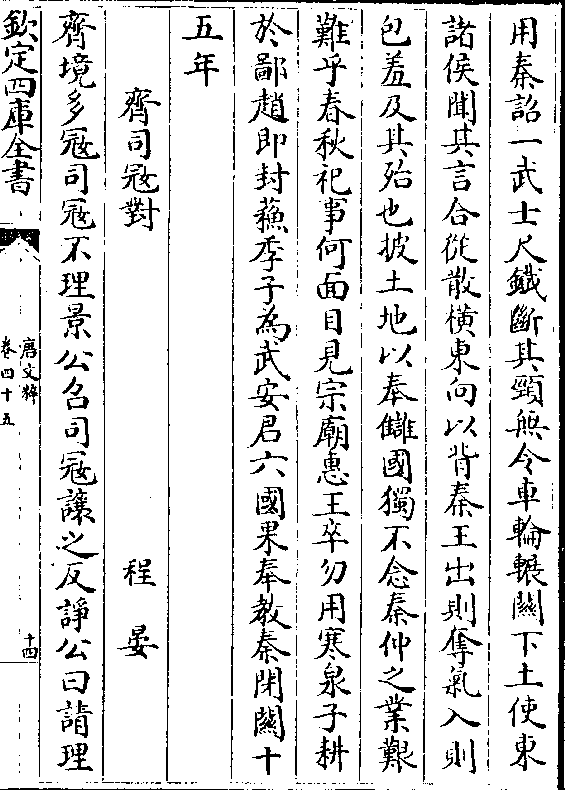 用秦詔一武士尺鐵斷其頸無令車輪輾關下土使東
諸侯聞其言合從散橫東向以背秦王出則奪氣入則
包羞及其殆也披土地以奉讎國獨不念秦仲之業艱
難乎春秋祀事何面目見宗廟惠王卒勿用寒泉子耕
於鄙趙即封蘇季子為武安君六國果奉教秦閉關十
五年
齊司冦對　程晏
齊境多冦司冦不理景公召司冦讓之反諍公曰請理
欽定四庫全書
唐文粹
卷四十五
十四